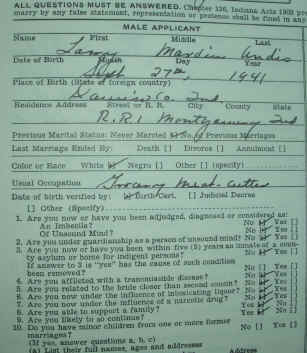 ALL QUESTIONS MUST BE ANSWERED. Chapter 126, Indiana Acts 1905
marry by any false statement, representation or pretense shall be fined in any
MALE APPLICANT
Name First Middle Last
Larry Mardin
Date of Birth Month Day Year
Sept 27th, 1941
Place of Birth (State or foreign country)
Daviess Co. Ind.
Residence Address Street or R. R. City County State
R.R.1 Montgomery Ind
Previous Marital Status: Never Married No. of Previous Marriages
Last Marriage Ended By: Death [ ] Divorce [ ] Annulment [ ]
Color or Race White Negro [ ] Other [ ] (specify)
Usual Occupation Grocery Meat-cutter
Date of birth verified by: Birth Cert. [ ] Judicial Decree
[ ] Other (Specify)
1. Are you now or have you been adjudged, diagnosed or considered as:
An Imbecile? No Yes [ ]
Of Unsound Mind? No Yes [ ]
2. Are you under guardianship as a person of unsound mind? No Yes [ ]
3. Are you now or have you been within five (5) years an inmate of a coun-
ty asylum or home for indigent persons? No Yes [ ]
If answer to 3 is "yes" has the cause of such condition
been removed? No [ ] Yes [ ]
4. Are you afflicted with a transmissible disease? No Yes [ ]
5. Are you related to the bride closer than second cousin? No Yes [ ]
6. Are you now under the influence of intoxicating liquor? No Yes [ ]
7. Are you now under the influence of a narcotic drug? No [ ]
8. Are you able to support a family? Yes No [ ]
9. Are you likely to so continue? Yes No [ ]
10. Do you have minor children from one or more former
marriages? No [ ] Yes [ ]
(If yes, answer questions a, b, c)
(a) List their full names, ages and addresses